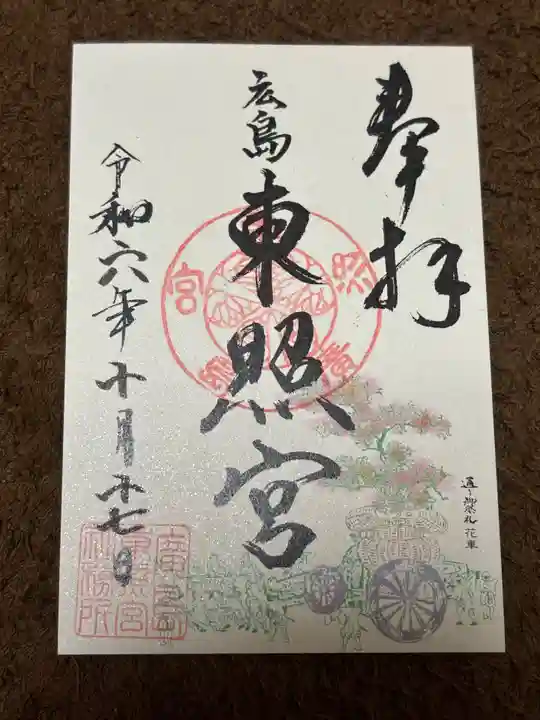 奉拝
広島
東照宮
令和六年十月廿七日
通り御祭礼 花車
廣島
東照宮
社務所